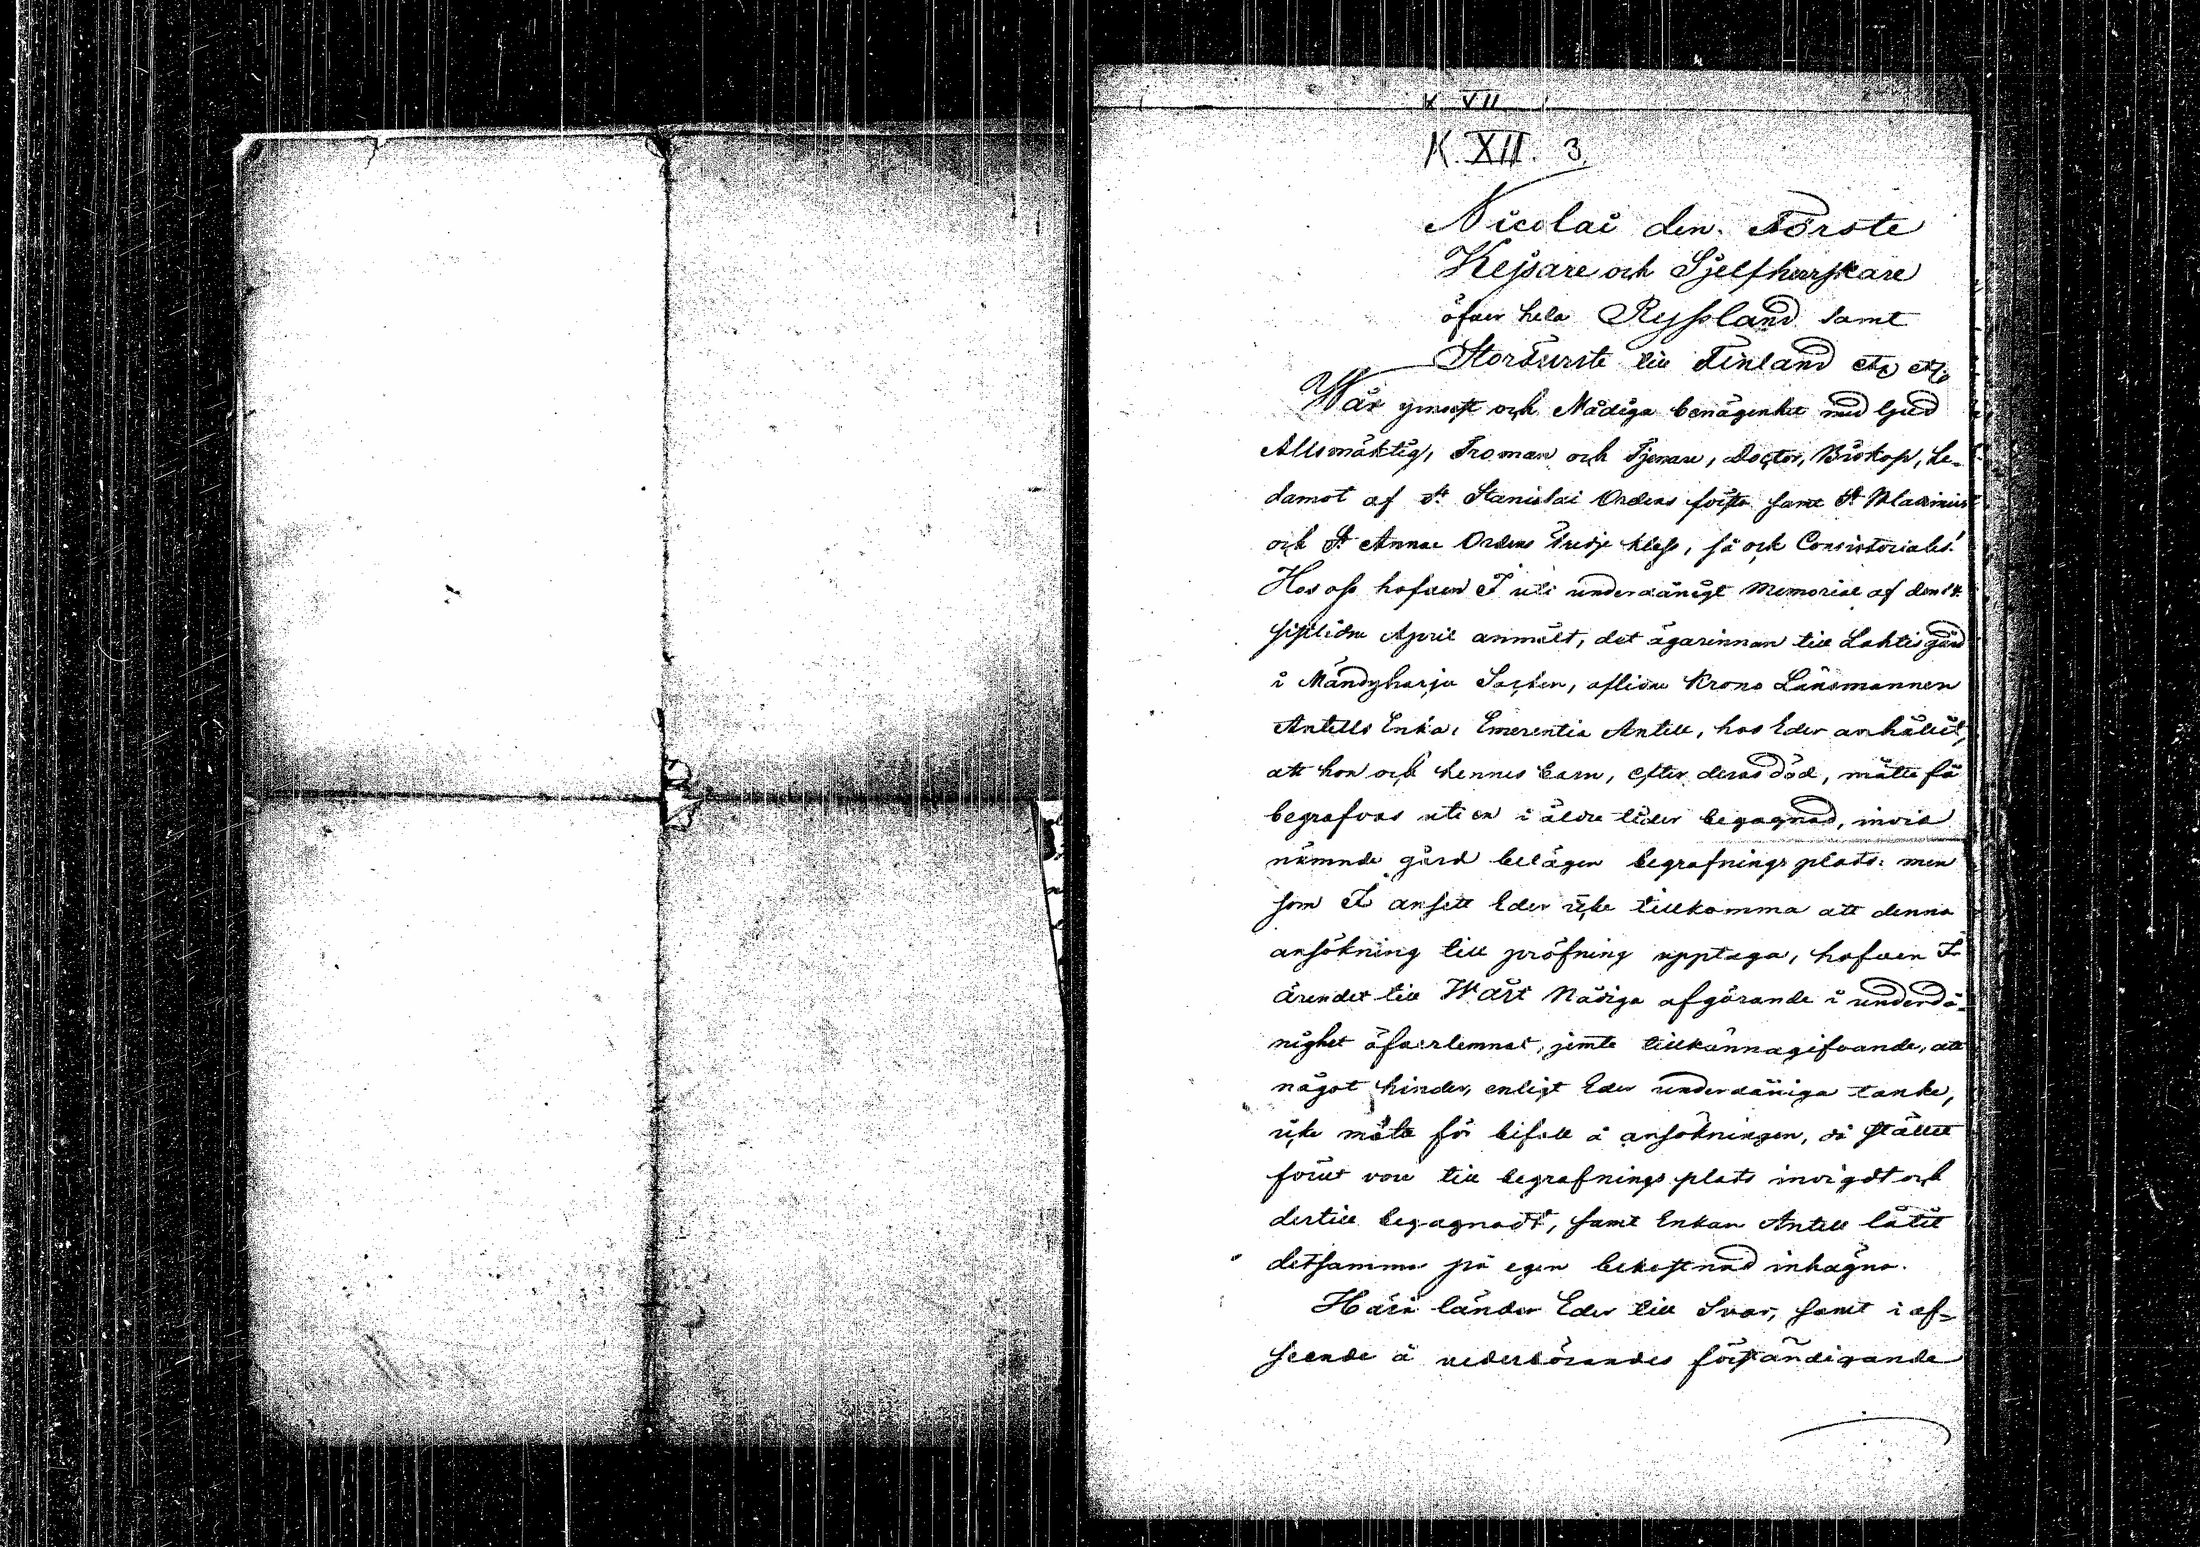 K. VII
K. XII. 3.
Nicolai den Förste
Kejsare och Sjelfherrskare
öfver hela Ryssland samt
Storfurste till Finland etc etc
Wår ynnest och Nådiga benägenhet med Gud
Allsmäktig, Troman och Tjenare, Doctor, Biskop, Le-
damot af St Stanislai Ordens första samt St Wladimirs
och St Annae Ordens tredje klass, så ock Consistoriales!
Hos oss hafven I uti underdånigt Memorial af den 14
sistlidne April anmält, det ägarinnan till Lahtis gård
i Mändyharju Socken, aflidne Krono Länsmannen
Antells Enka, Emerentia Antell, hos Eder anhållit,
att hon och hennes barn, efter deras död, måtte få
begrafvas uti en i äldre tider begagnad, invid
nämnde gård belägen begrafnings plats: men
som I ansett Eder icke tillkomma att denna
ansökning till pröfning upptaga, hafven I
ärendet till Wårt Nådiga afgörande i underdå-
nighet öfverlemnat, jemte tillkännagifvande, att
något hinder, enligt Eder underdåniga tanke,
icke möta för bifall å ansökningen, då stället
förut vore till begrafnings plats invigdt och
dertill begagnadt, samt Enkan Antell låtit
detsamma på egen bekostnad inhägna.
Härå länder Eder till Svar, samt i af-
seende å vederbörandes förständigande